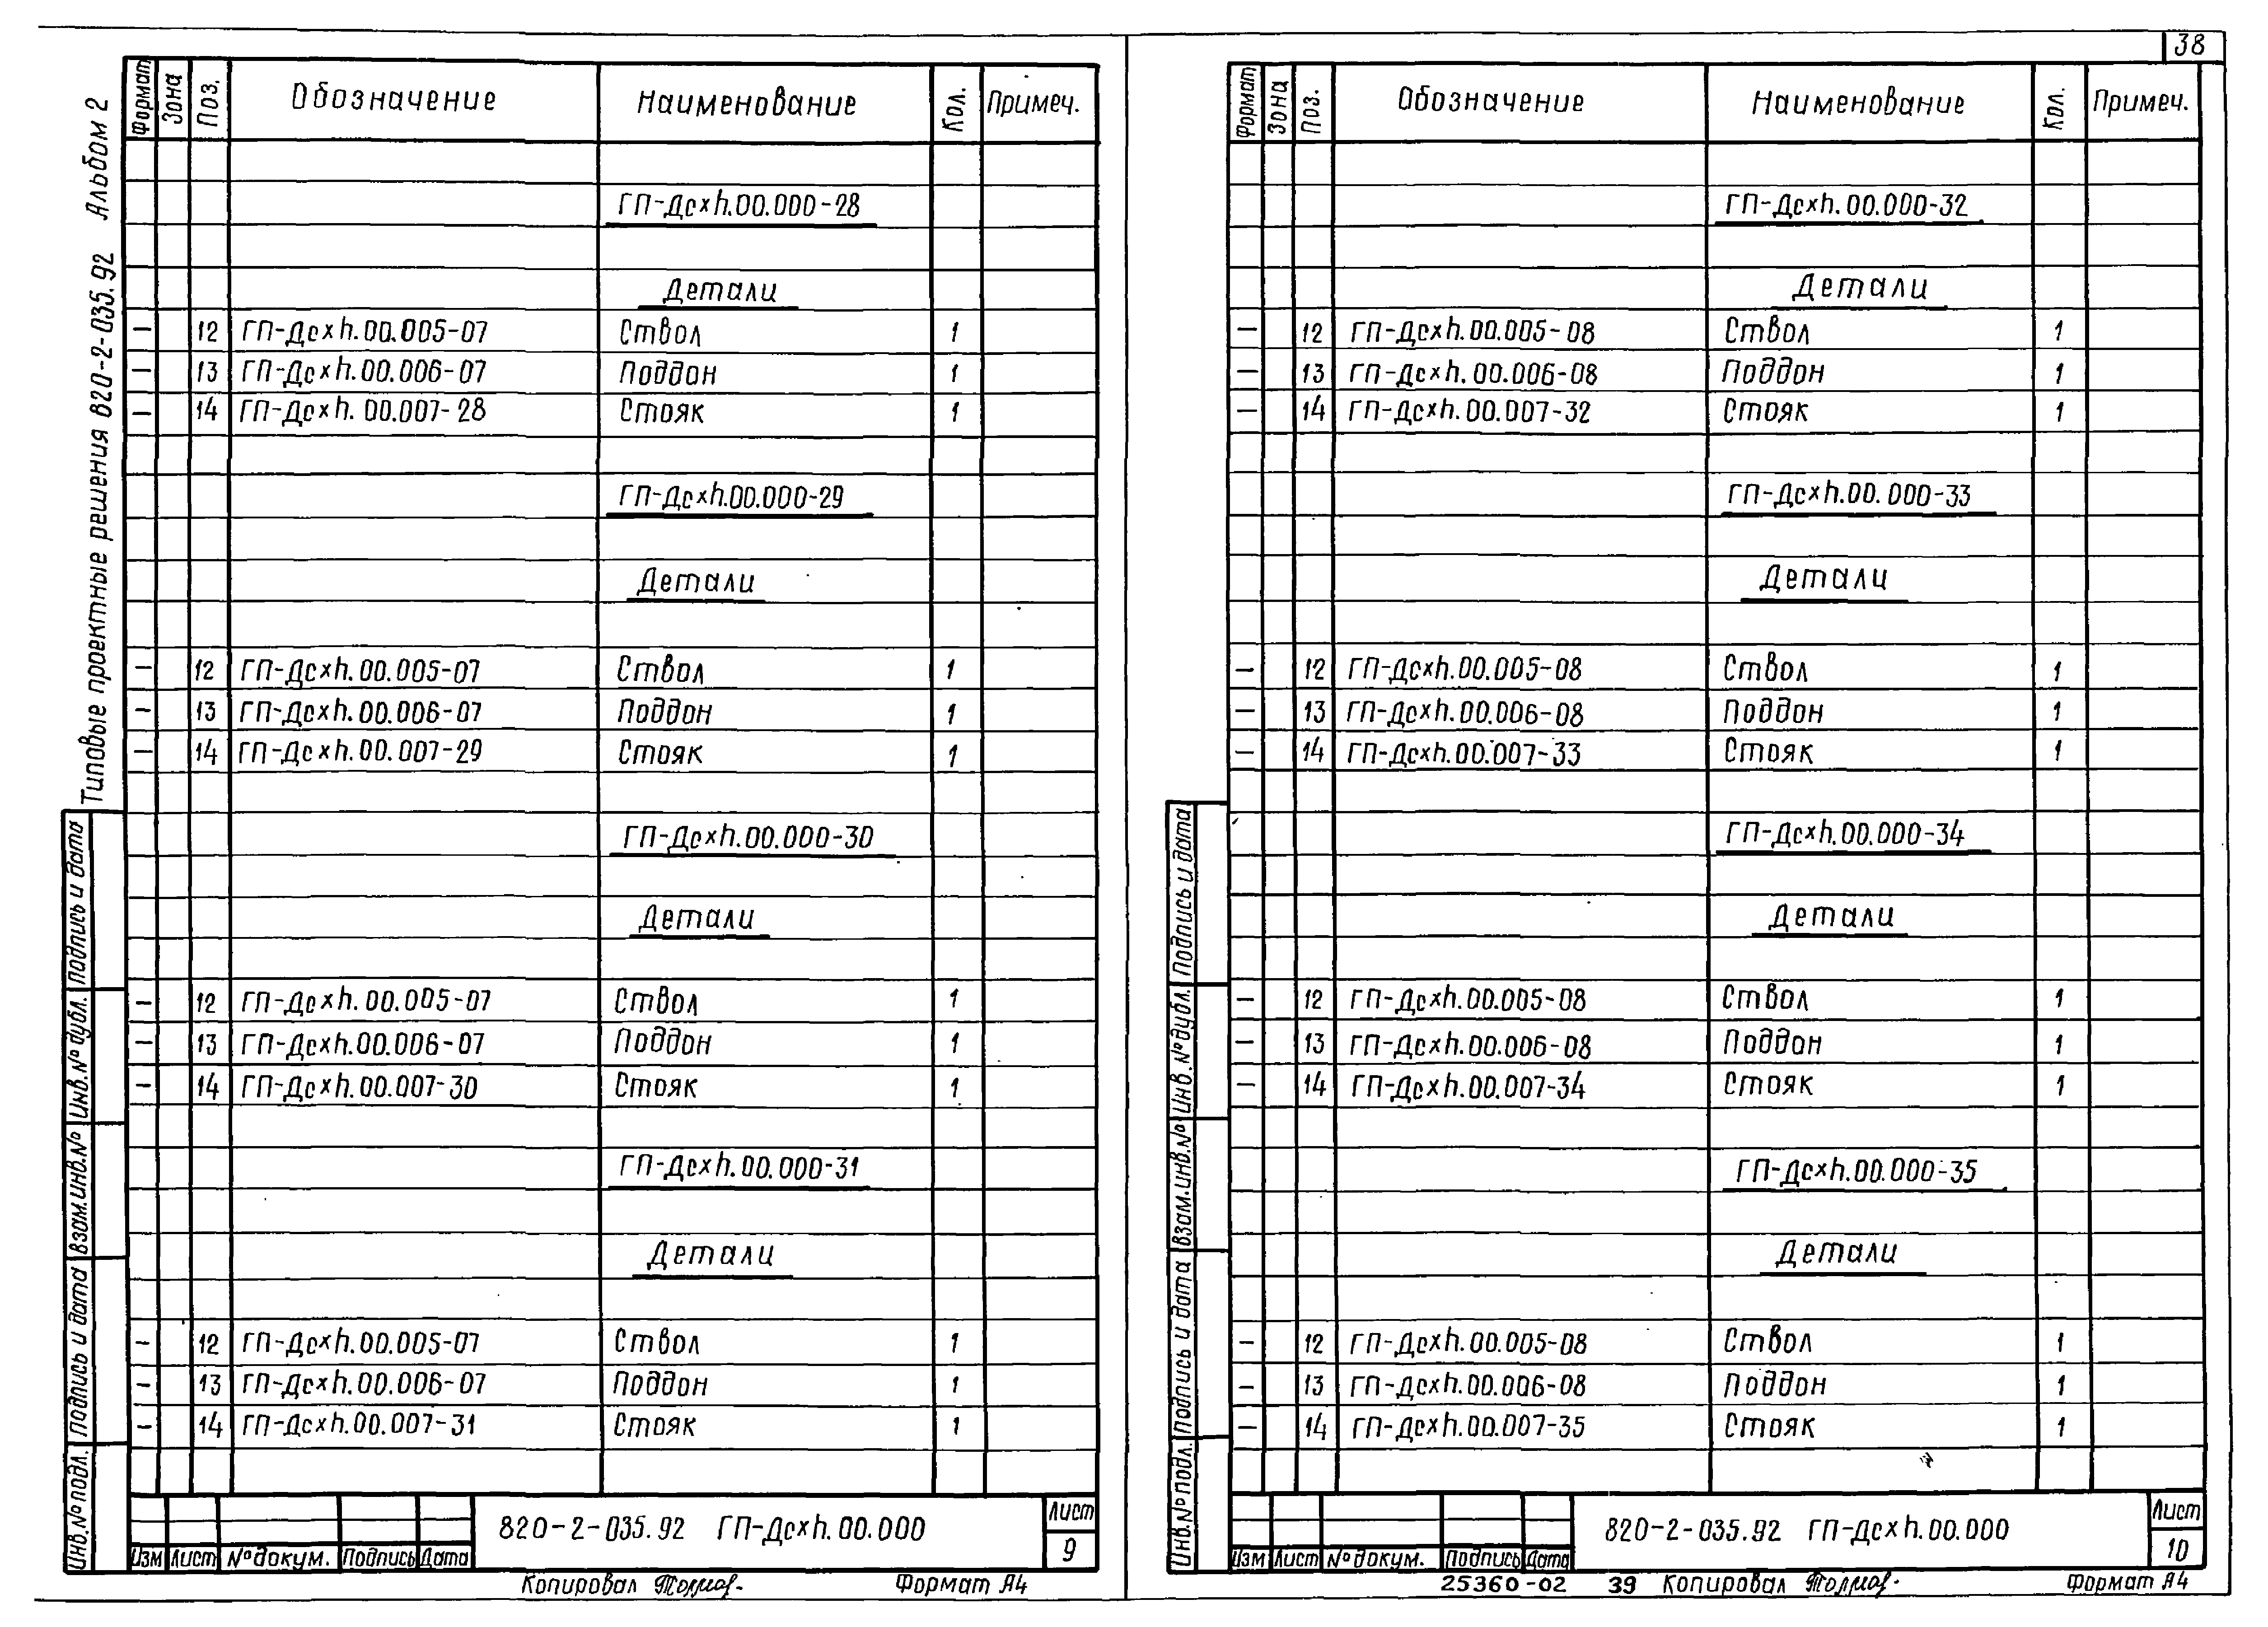 38
Типовые проектные решения 820-2-035.92 Альбом 2
Формат Зона Поз. Обозначение Наименование Кол. Примеч.
ГП-Дсхh.00.000-28
Детали
– 12 ГП-Дсхh.00.005-07 Ствол 1
– 13 ГП-Дсхh.00.006-07 Поддон 1
– 14 ГП-Дсхh.00.007-28 Стояк 1
ГП-Дсхh.00.000-29
Детали
– 12 ГП-Дсхh.00.005-07 Ствол 1
– 13 ГП-Дсхh.00.006-07 Поддон 1
– 14 ГП-Дсхh.00.007-29 Стояк 1
ГП-Дсхh.00.000-30
Детали
– 12 ГП-Дсхh.00.005-07 Ствол 1
– 13 ГП-Дсхh.00.006-07 Поддон 1
– 14 ГП-Дсхh.00.007-30 Стояк 1
ГП-Дсхh.00.000-31
Детали
– 12 ГП-Дсхh.00.005-07 Ствол 1
– 13 ГП-Дсхh.00.006-07 Поддон 1
– 14 ГП-Дсхh.00.007-31 Стояк 1
Инв.№ подл. Подпись и дата Взам.инв.№ Инв.№ дубл. Подпись и дата
820-2-035.92 ГП-Дсхh.00.000
Лист
9
Изм Лист № докум. Подпись Дата
Копировал Формат А4
Формат Зона Поз. Обозначение Наименование Кол. Примеч.
ГП-Дсхh.00.000-32
Детали
– 12 ГП-Дсхh.00.005-08 Ствол 1
– 13 ГП-Дсхh.00.006-08 Поддон 1
– 14 ГП-Дсхh.00.007-32 Стояк 1
ГП-Дсхh.00.000-33
Детали
– 12 ГП-Дсхh.00.005-08 Ствол 1
– 13 ГП-Дсхh.00.006-08 Поддон 1
– 14 ГП-Дсхh.00.007-33 Стояк 1
ГП-Дсхh.00.000-34
Детали
– 12 ГП-Дсхh.00.005-08 Ствол 1
– 13 ГП-Дсхh.00.006-08 Поддон 1
– 14 ГП-Дсхh.00.007-34 Стояк 1
ГП-Дсхh.00.000-35
Детали
– 12 ГП-Дсхh.00.005-08 Ствол 1
– 13 ГП-Дсхh.00.006-08 Поддон 1
– 14 ГП-Дсхh.00.007-35 Стояк 1
Инв.№ подл. Подпись и дата Взам.инв.№ Инв.№ дубл. Подпись и дата
820-2-035.92 ГП-Дсхh.00.000
Лист
10
Изм Лист № докум. Подпись Дата
25360-02 39 Копировал Формат А4